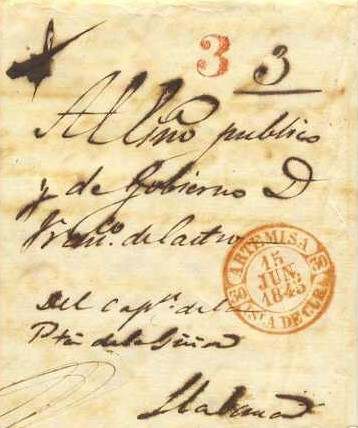 3 3
Al Esno publico
y de Gobierno D
Franco. de Castro
ARTEMISA
30 15 30
JUN.
1845
ISLA DE CUBA
Del Capn. de la
Pta de la
Habana